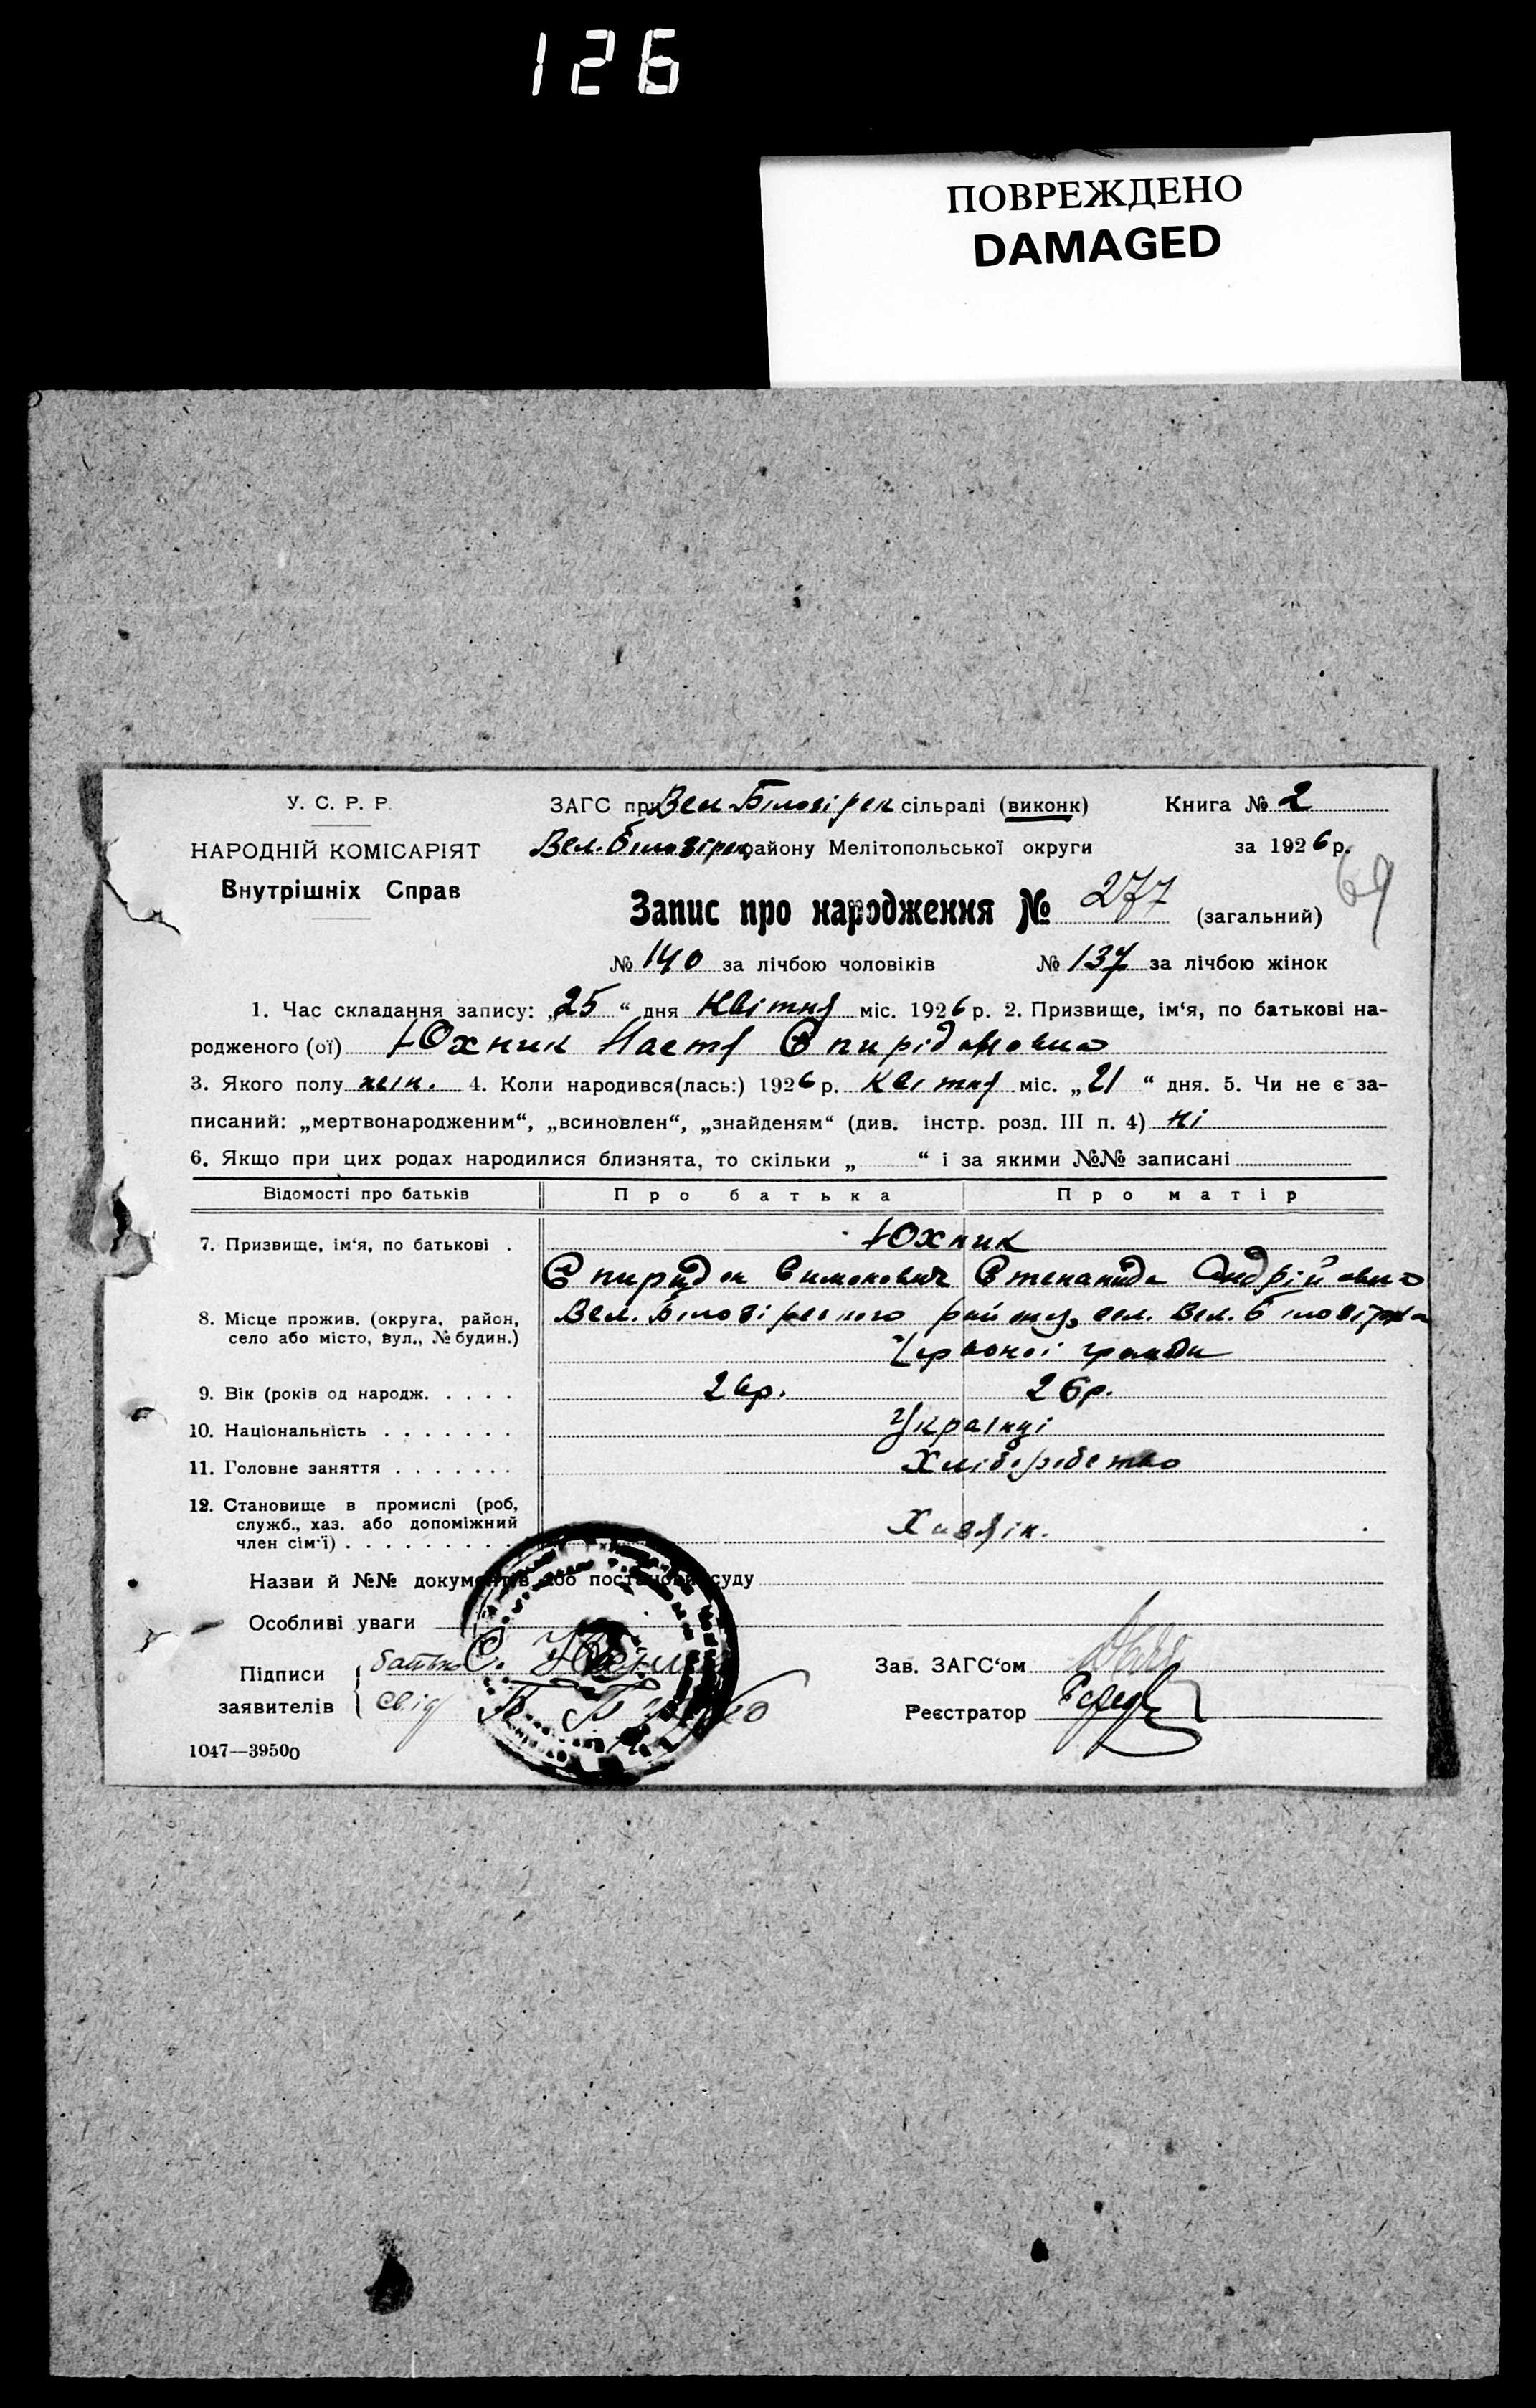 126
ПОВРЕЖДЕНО
DAMAGED
У. С. Р. Р.
НАРОДНІЙ КОМІСАРІЯТ
Внутрішніх Справ
ЗАГС при Вел. Білозірск сільраді (виконк) Книга № 2
Вел. Білозірск району Мелітопольської округи за 1926 р.
69
Запис про народження № 277 (загальний)
№ 140 за лічбою чоловіків № 137 за лічбою жінок
1. Час складання запису: „25“ дня Квітня міс. 1926 р. 2. Призвище, ім‘я, по батькові на-
родженого (ої) Юхник Настя Спирідоновна
3. Якого полу жін. 4. Коли народився(лась:) 1926 р. Квітня міс. „21“ дня. 5. Чи не є за-
писаний: „мертвонародженим“, „всиновлен“, „знайденям“ (див. інстр. розд. III п. 4) ні
6. Якщо при цих родах народилися близнята, то скільки „ “ і за якими №№ записані
Відомості про батьків Про батька Про матір
7. Призвище, ім‘я, по батькові . Юхник
Спирідон Симонович Степанида Андрійовна
8. Місце прожив. (округа, район, село або місто, вул., № будин.) Вел. Білозірського району, сел. Вел. Білозірка
Червоної громади
9. Вік (років од народж. . . . . 26р. 26р.
10. Національність . . . . . . . Українці
11. Головне заняття . . . . . . . Хліборобство
12. Становище в промислі (роб, служб., хаз. або допоміжний член сім‘ї) . . . . . . . . . Хазяін.
Назви й №№ документів або постанови суду
Особливі уваги
Підписи заявителів { батько С.
свід
Зав. ЗАГС‘ом
Реєстратор
1047—39500